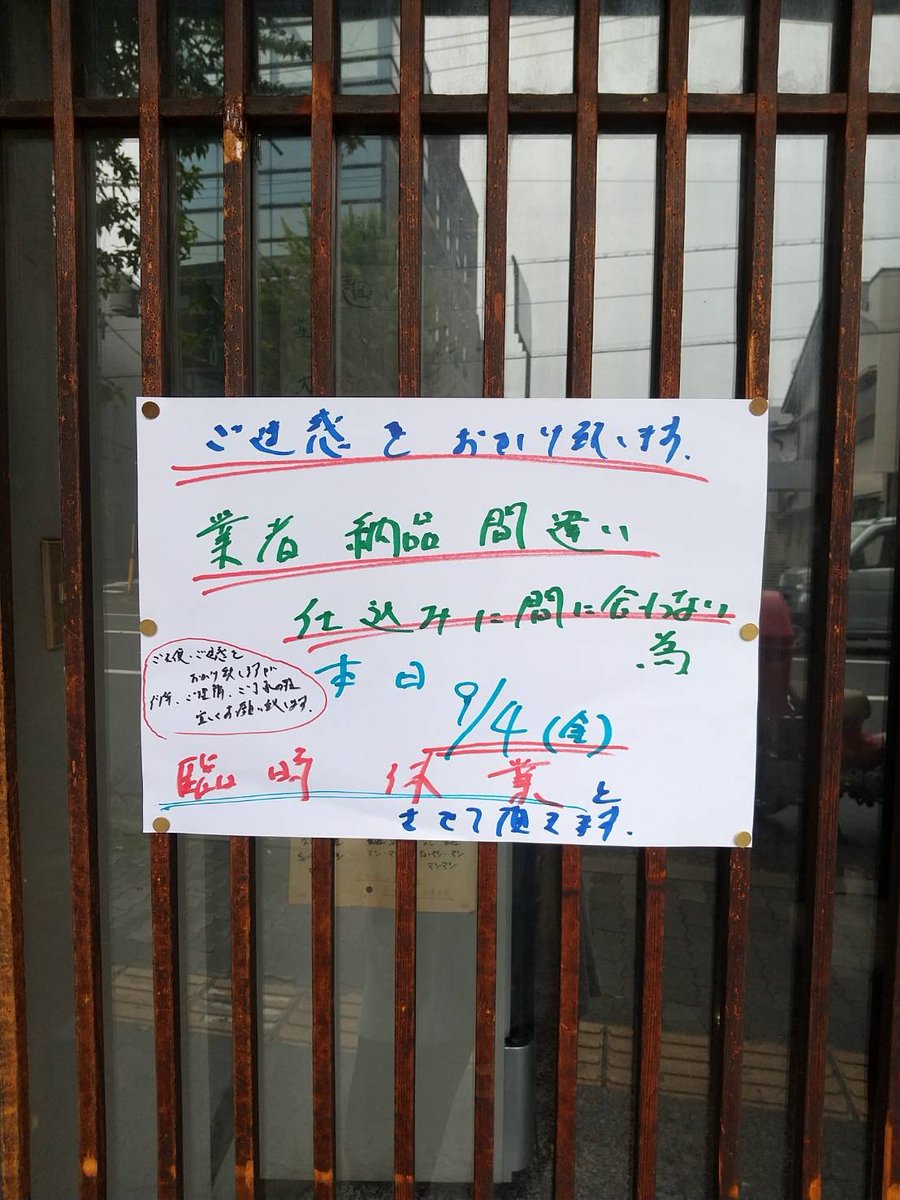 ご迷惑をおかけ致します。
業者 納品 間違い
仕込みに間に合わない
為
本日
9/4(金)
ご不便、ご迷惑を
おかけ致しますが
何卒、ご理解、ご了承の程
宜しくお願い致します。
臨時 休業と
させて頂きます。